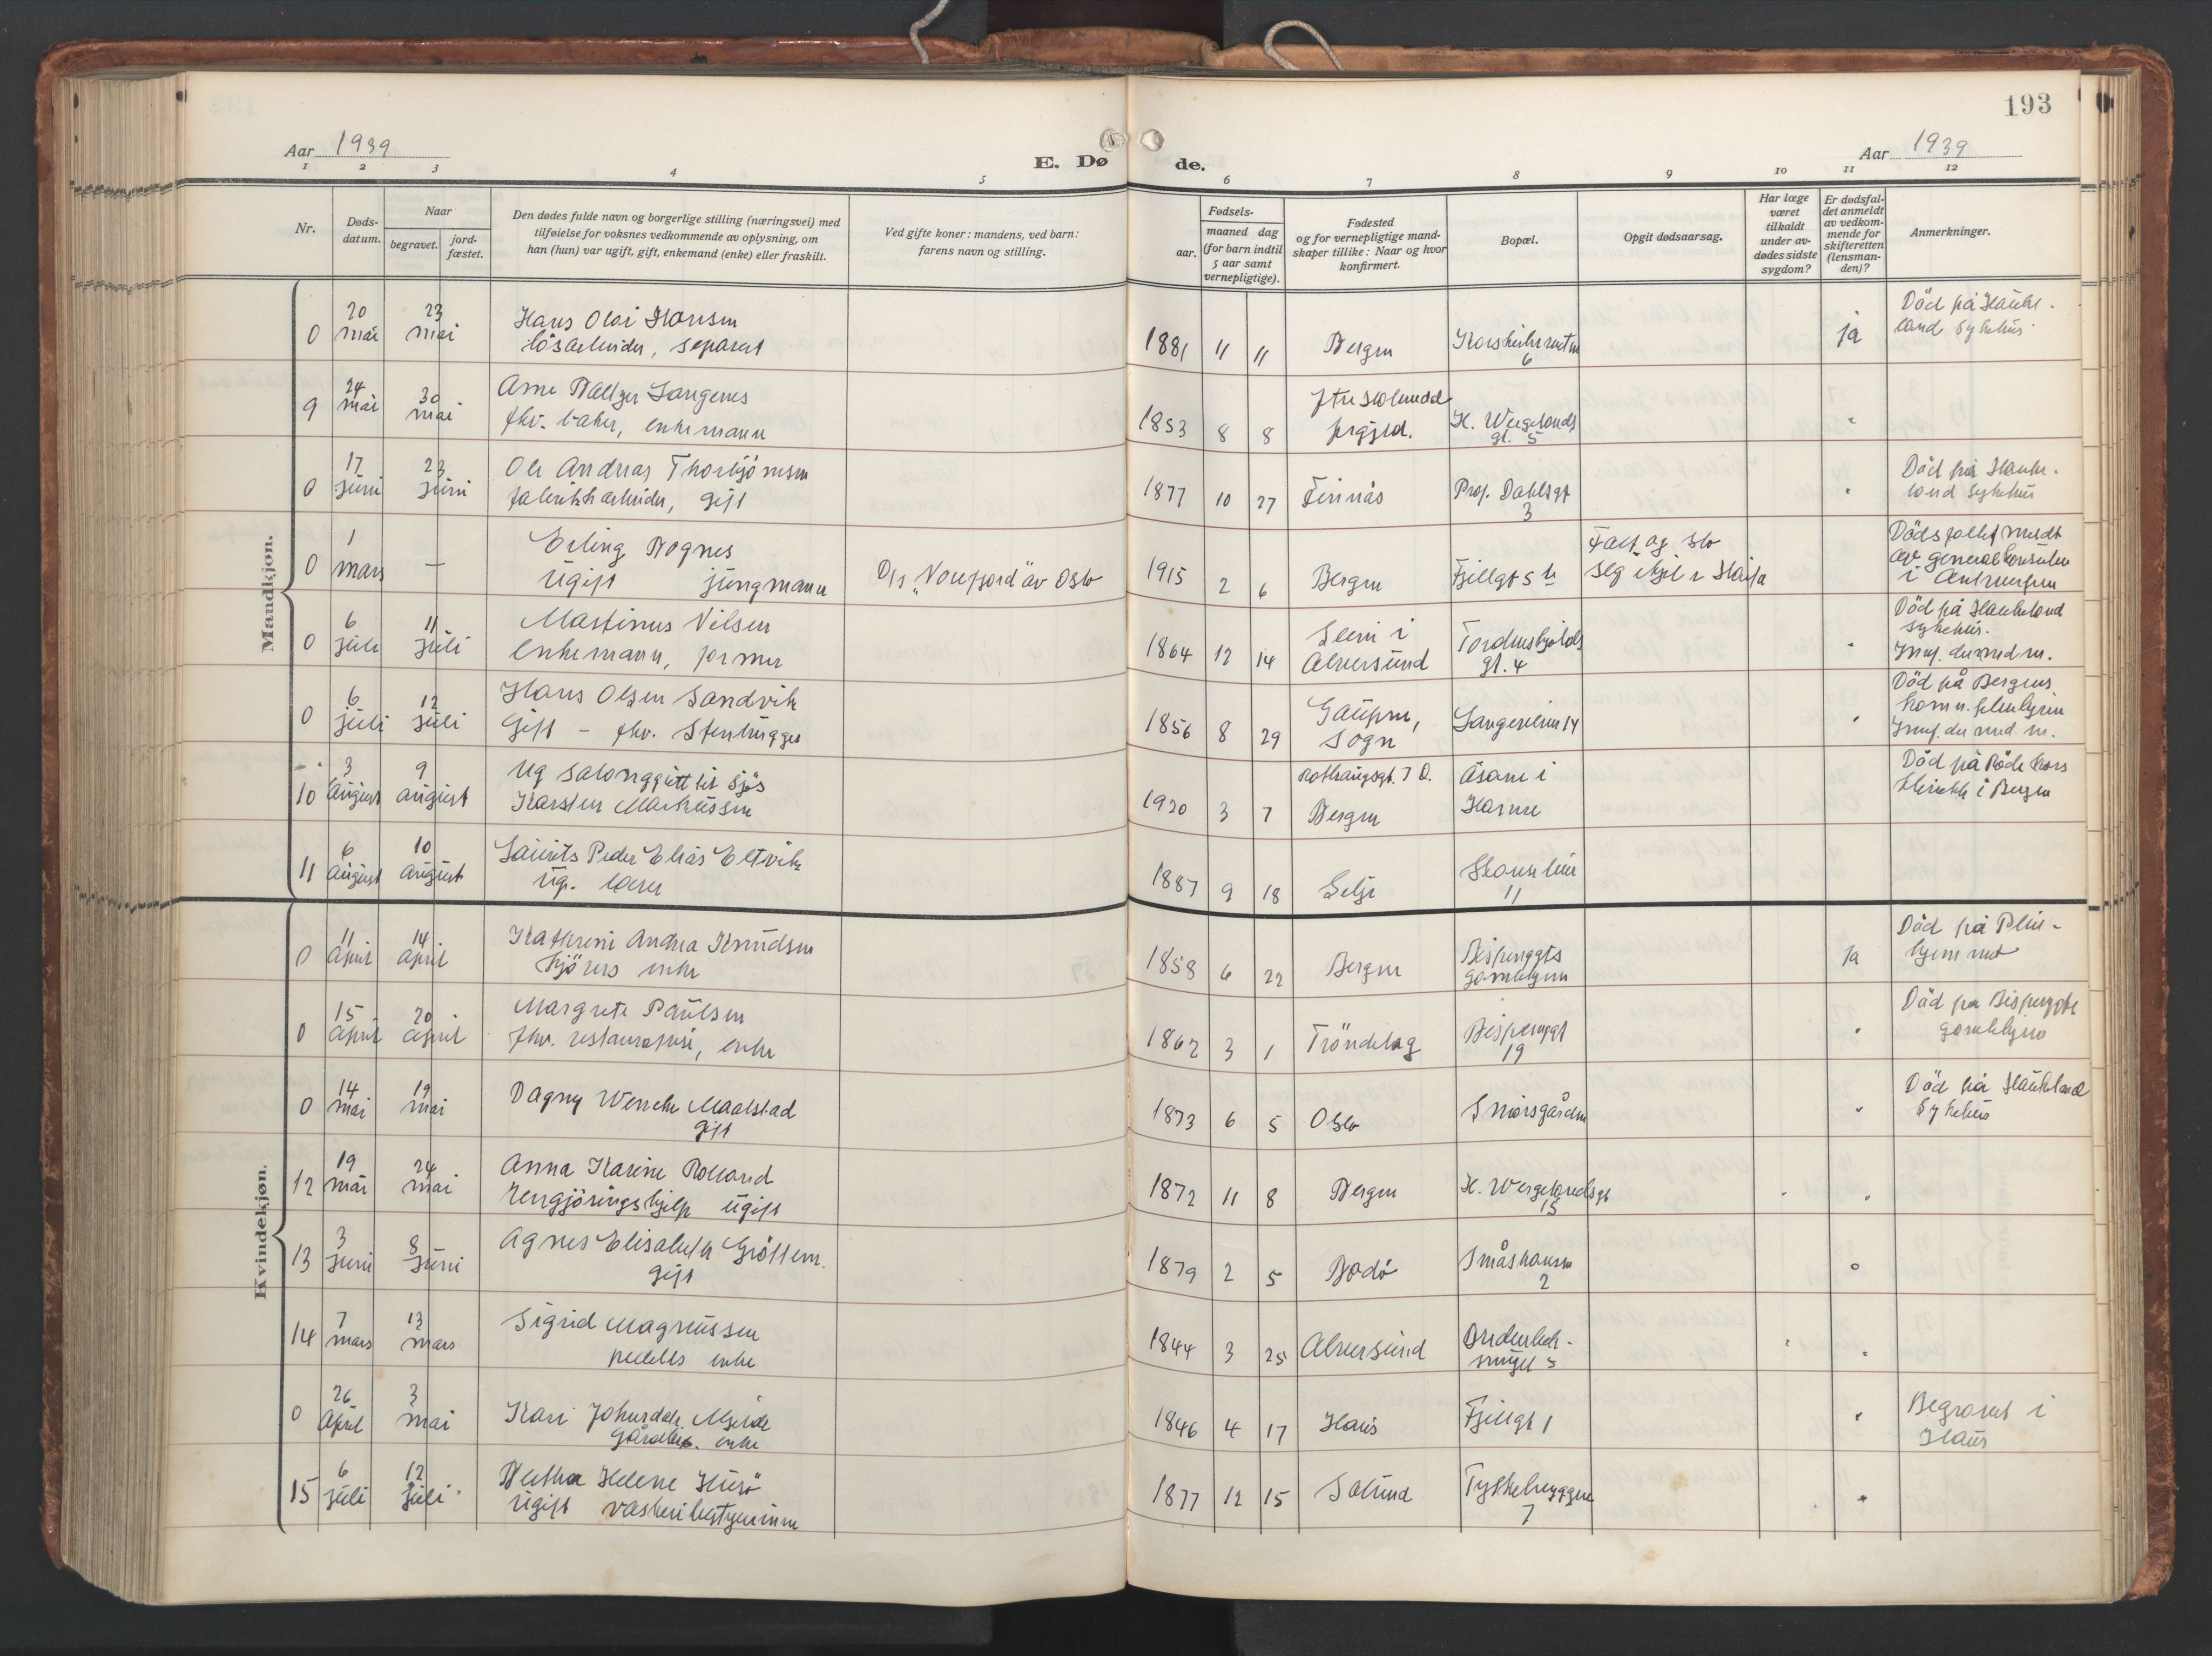 193
Aar 1939
E. Døde.
Aar 1939
1 2 3 4 5 6 7 8 9 10 11 12
Nr.
Døds-
datum.
Naar
begravet.
jord-
fæstet.
Den dødes fulde navn og borgerlige stilling (næringsvei) med
tilføielse for voksnes vedkommende av oplysning, om
han (hun) var ugift, gift, enkemand (enke) eller fraskilt.
Ved gifte koner: mandens, ved barn:
farens navn og stilling.
Fødsels-
aar.
maaned dag
(for barn indtil
5 aar samt
vernepligtige).
Fødested
og for vernepligtige mand-
skaper tillike: Naar og hvor
konfirmert.
Bopæl.
Opgit dødsaarsag.
Har læge
været
tilkaldt
under av-
dødes sidste
sygdom?
Er dødsfal-
det anmeldt
av vedkom-
mende for
skifteretten
(lensman-
den)?
Anmerkninger.
Mandkjøn.
0 20 mai 23 mai Hans Olai Hansen
løsarbeider, separert
1881 11 11 Bergen 6 ja Död på Hauke-
land sykehus
9 24 mai 30 mai Arne Baltzer Langenes
fhv. baker, enkemann
1853 8 8 prgjeld. H. Wergelands
gt. 5
0 17 juni 23 juni Ole Andreas Thorbjörnsen
fabrikkarbeider, gift
1877 10 27 Prof. Dahlsgt
3 Död på Hauke-
land sykehus
0 1 mars — Erling Bognes
ugift jungmann D/s "Norefjord" av Oslo
1915 2 6 Bergen Fjellgt 5 Falt og slo
seg ihjel Dödsfallet meldt
av generalkonsulen
i Antwerpen
0 6 juli 11 juli Martinus Nilsen
enkemann, former
1864 12 14 i
Alversund Tordenskjolds
gt. 4 Död på Haukeland
sykehus.
0 6 juli 12 juli Hans Olsen Sandvik
Gift - fhv. Stenhugger
1856 8 29 Gaupne,
Sogn 14 Död på Bergens
komm. pleiehjem
10 3 august 9 august Ug salonggutt til sjøs
Karsten Markussen
1920 3 7 Bergen Åsane i
Hamre Död på Røde Kors
klinikk i Bergen
11 6 august 10 august Laurits Peder Elias Eltvik
ug.
1887 9 18 Selje 11
Kvindekjøn.
0 11 April 14 April Kathrine Andrea Knudsen
kjörers enke
1858 6 22 Bergen Bispenggts
gamlehjem ja Död på Pleie-
hjemmet
0 15 April 20 april Margrete Paulsen
fhv. enke
1862 3 1 Tröndelag Bispenggt
19 Död på Bispenggts
gamlehjem
0 14 mai 19 mai Dagny Wenche Maalstad
gift
1873 6 5 Oslo Smørsgården Död på Haukeland
Sykehus
12 19 mai 24 mai Anna Karine Rolland
rengjöringshjelp ugift
1872 11 8 Bergen H. Wergelandsgt
15
13 3 juni 8 juni Agnes Elisabeth Gröttem.
gift
1879 2 5 Bodö 2
14 7 mars 13 mars Sigrid Magnussen
pedells enke
1844 3 25 Alversund
0 26 April 3 mai Kari Johnsdatr. Mjelde
gårdbr. enke
1846 4 17 Haus Fjellgt 1 Begravet i
Haus
15 6 juli 12 juli Bertha Helene Husö
ugift vaskeribestyrerinne
1877 12 15 Solund Tyskebryggen
7